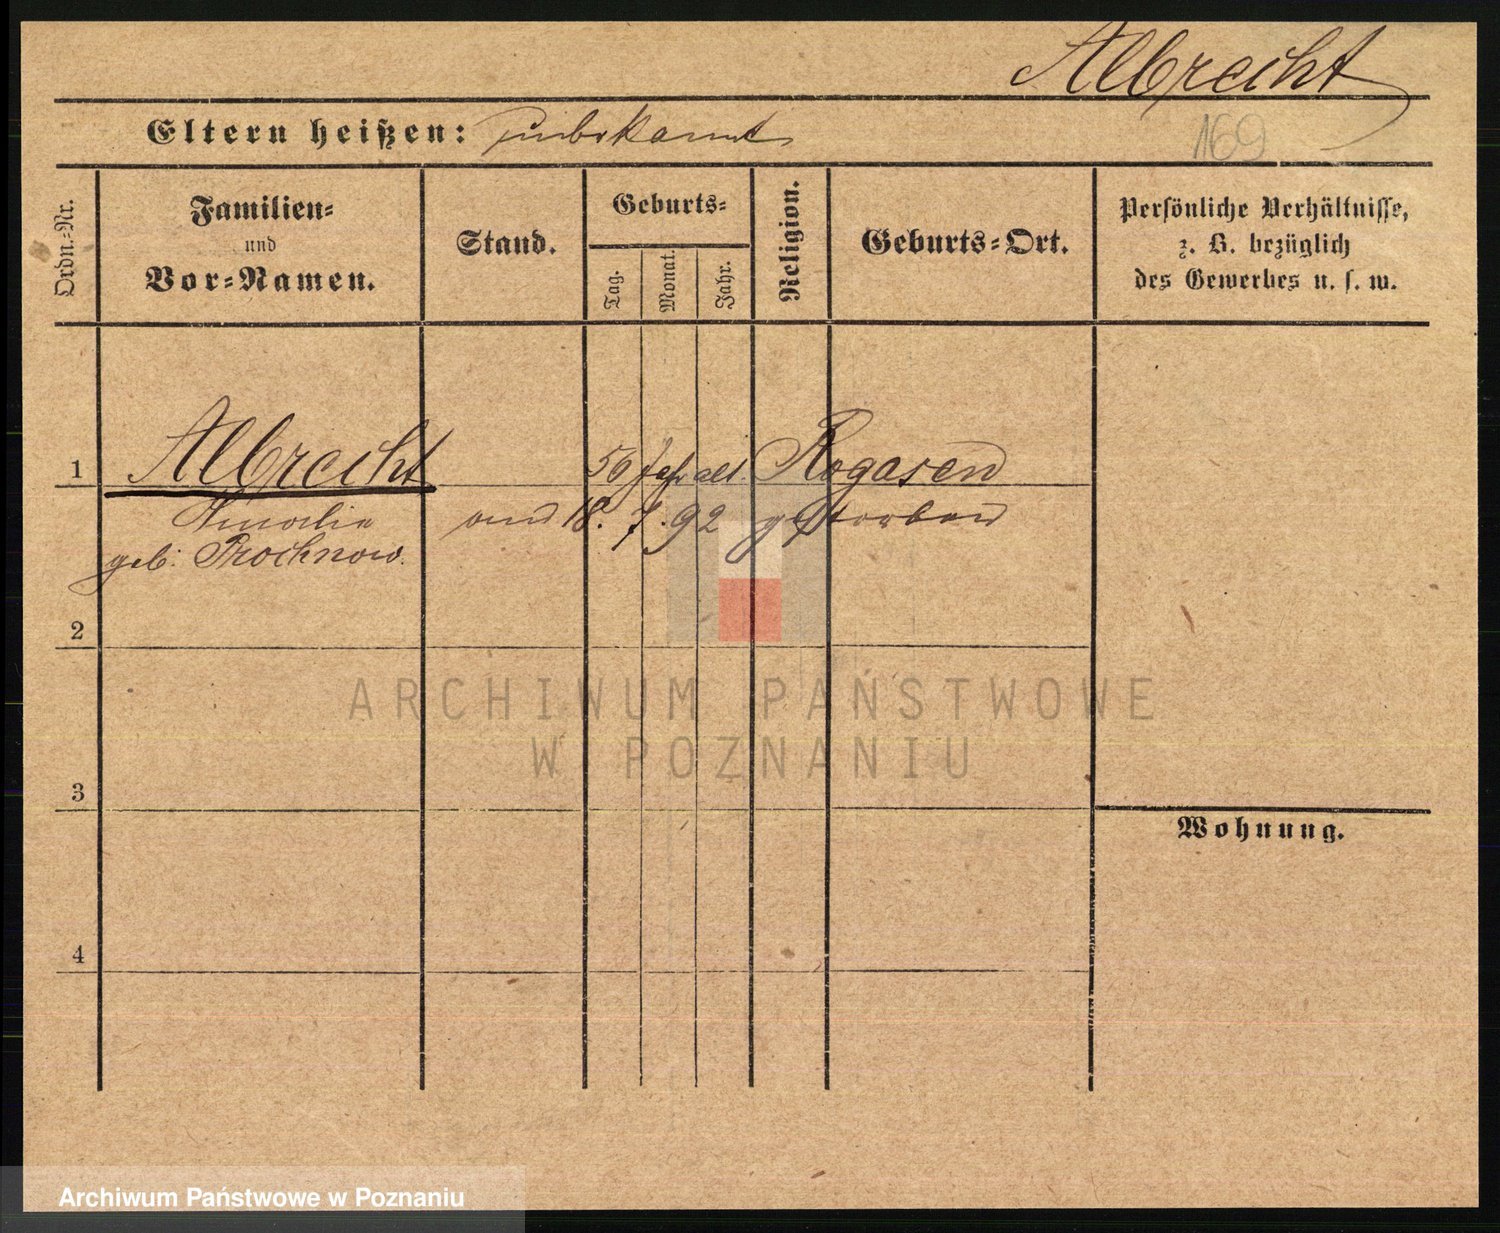 Albrecht
Eltern heißen: unbekannt
169
Ordn.-Nr.
Familien- und Vor-Namen.
Stand.
Geburts-
Tag.
Monat.
Jahr.
Religion.
Geburts-Ort.
Persönliche Verhältnisse,
z. B. bezüglich
des Gewerbes u. s. w.
1 Albrecht 50 Jahr alt. Rogasen
Amalie am 18. 7. 92 gestorben
geb: Prochnow.
2
ARCHIWUM PAŃSTWOWE
W POZNANIU
3
Wohnung.
4
Archiwum Państwowe w Poznaniu